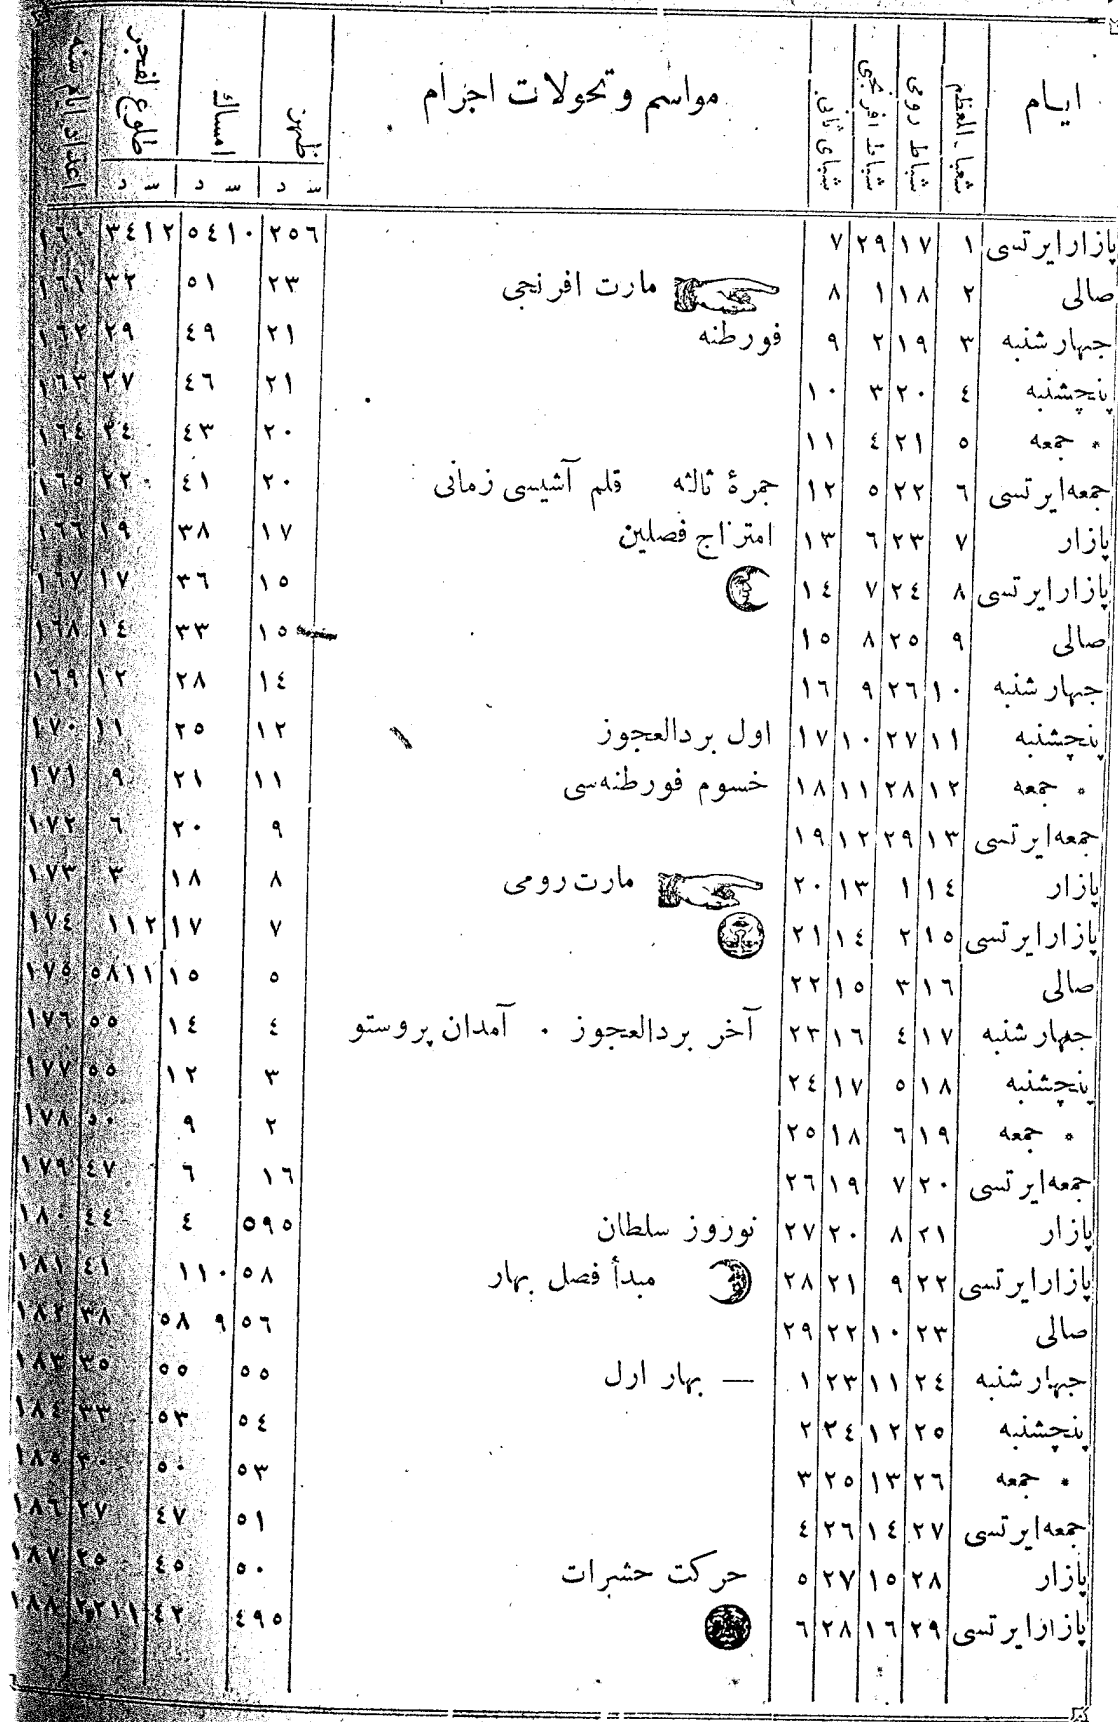 ايام شعبا_المعظم شباط رومى شباط افرنجى شباى ثانى مواسم و تحولات اجرام ظهر امساك طلوع الفجر اعداد ايام سنه
س د س د س د
پازارايرتسى ١ ١٧ ٢٩ ٧ ٢٥٦ ٥٤١٠ ٣٤١٢ ١٦٠
صالى ٢ ١٨ ١ ٨ مارت افرنجى ٢٣ ٥١ ٣٢ ١٦١
جهارشنبه ٣ ١٩ ٢ ٩ فورطنه ٢١ ٤٩ ٢٩ ١٦٢
پنچشنبه ٤ ٢٠ ٣ ١٠ ٢١ ٤٦ ٢٧ ١٦٣
* جمعه ٥ ٢١ ٤ ١١ ٢٠ ٤٣ ٢٤ ١٦٤
جمعه‌ايرتسى ٦ ٢٢ ٥ ١٢ جمرۀ ثالثه قلم آشيسى زمانى ٢٠ ٤١ ٢٢ ١٦٥
پازار ٧ ٢٣ ٦ ١٣ امتزاج فصلين ١٧ ٣٨ ١٩ ١٦٦
پازارايرتسى ٨ ٢٤ ٧ ١٤ ١٥ ٣٦ ١٧ ١٦٧
صالى ٩ ٢٥ ٨ ١٥ ١٥ ٣٣ ١٤ ١٦٨
جهارشنبه ١٠ ٢٦ ٩ ١٦ ١٤ ٢٨ ١٢ ١٦٩
پنچشنبه ١١ ٢٧ ١٠ ١٧ اول بردالعجوز ١٢ ٢٥ ١١ ١٧٠
* جمعه ١٢ ٢٨ ١١ ١٨ خسوم فورطنه‌سى ١١ ٢١ ٩ ١٧١
جمعه‌ايرتسى ١٣ ٢٩ ١٢ ١٩ ٩ ٢٠ ٦ ١٧٢
پازار ١٤ ١ ١٣ ٢٠ مارت رومى ٨ ١٨ ٣ ١٧٣
پازارايرتسى ١٥ ٢ ١٤ ٢١ ٧ ١٧ ١١٢ ١٧٤
صالى ١٦ ٣ ١٥ ٢٢ ٥ ١٥ ٥٨١١ ١٧٥
جهارشنبه ١٧ ٤ ١٦ ٢٣ آخر بردالعجوز ٠ آمدان پروستو ٤ ١٤ ٥٥ ١٧٦
پنچشنبه ١٨ ٥ ١٧ ٢٤ ٣ ١٢ ٥٥ ١٧٧
* جمعه ١٩ ٦ ١٨ ٢٥ ٢ ٩ ٥٠ ١٧٨
جمعه‌ايرتسى ٢٠ ٧ ١٩ ٢٦ ١٦ ٦ ٤٧ ١٧٩
پازار ٢١ ٨ ٢٠ ٢٧ نوروز سلطان ٥٩٥ ٤ ٤٤ ١٨٠
پازارايرتسى ٢٢ ٩ ٢١ ٢٨ مبدأ فصل بهار ٥٨ ١١٠ ٤١ ١٨١
صالى ٢٣ ١٠ ٢٢ ٢٩ ٥٦ ٥٨ ٩ ٣٨ ١٨٢
جهارشنبه ٢٤ ١١ ٢٣ ١ — بهار ارل ٥٥ ٥٥ ٣٥ ١٨٣
پنچشنبه ٢٥ ١٢ ٢٤ ٢ ٥٤ ٥٣ ٣٣ ١٨٤
* جمعه ٢٦ ١٣ ٢٥ ٣ ٥٣ ٥٠ ٣٠ ١٨٥
جمعه‌ايرتسى ٢٧ ١٤ ٢٦ ٤ ٥١ ٤٧ ٢٧ ١٨٦
پازار ٢٨ ١٥ ٢٧ ٥ حركت حشرات ٥٠ ٤٥ ٢٥ ١٨٧
پازارايرتسى ٢٩ ١٦ ٢٨ ٦ ٤٩٥ ٤٢ ٢٢١١ ١٨٨